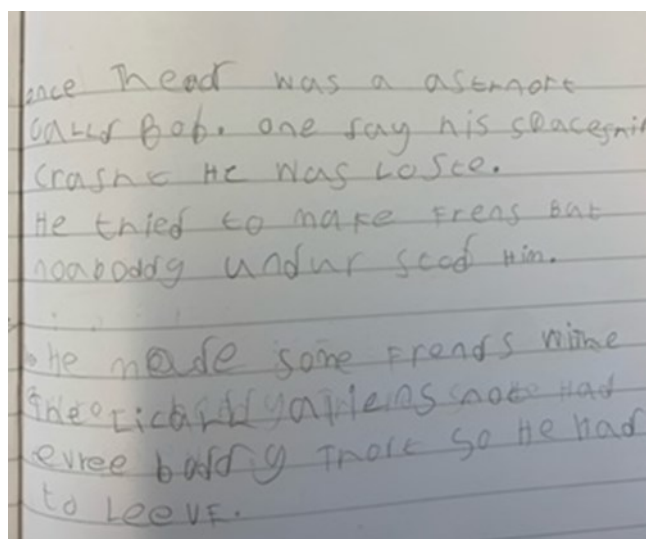 once Thear was a asternort
calld Bob. one day his spaceshi
crashd He was Loste.
He tried to make Frens But
noaboddy undur stood Him.
he made some Frends withe
the aliens note Had
evree boddy Thort so He had
to Leeve.